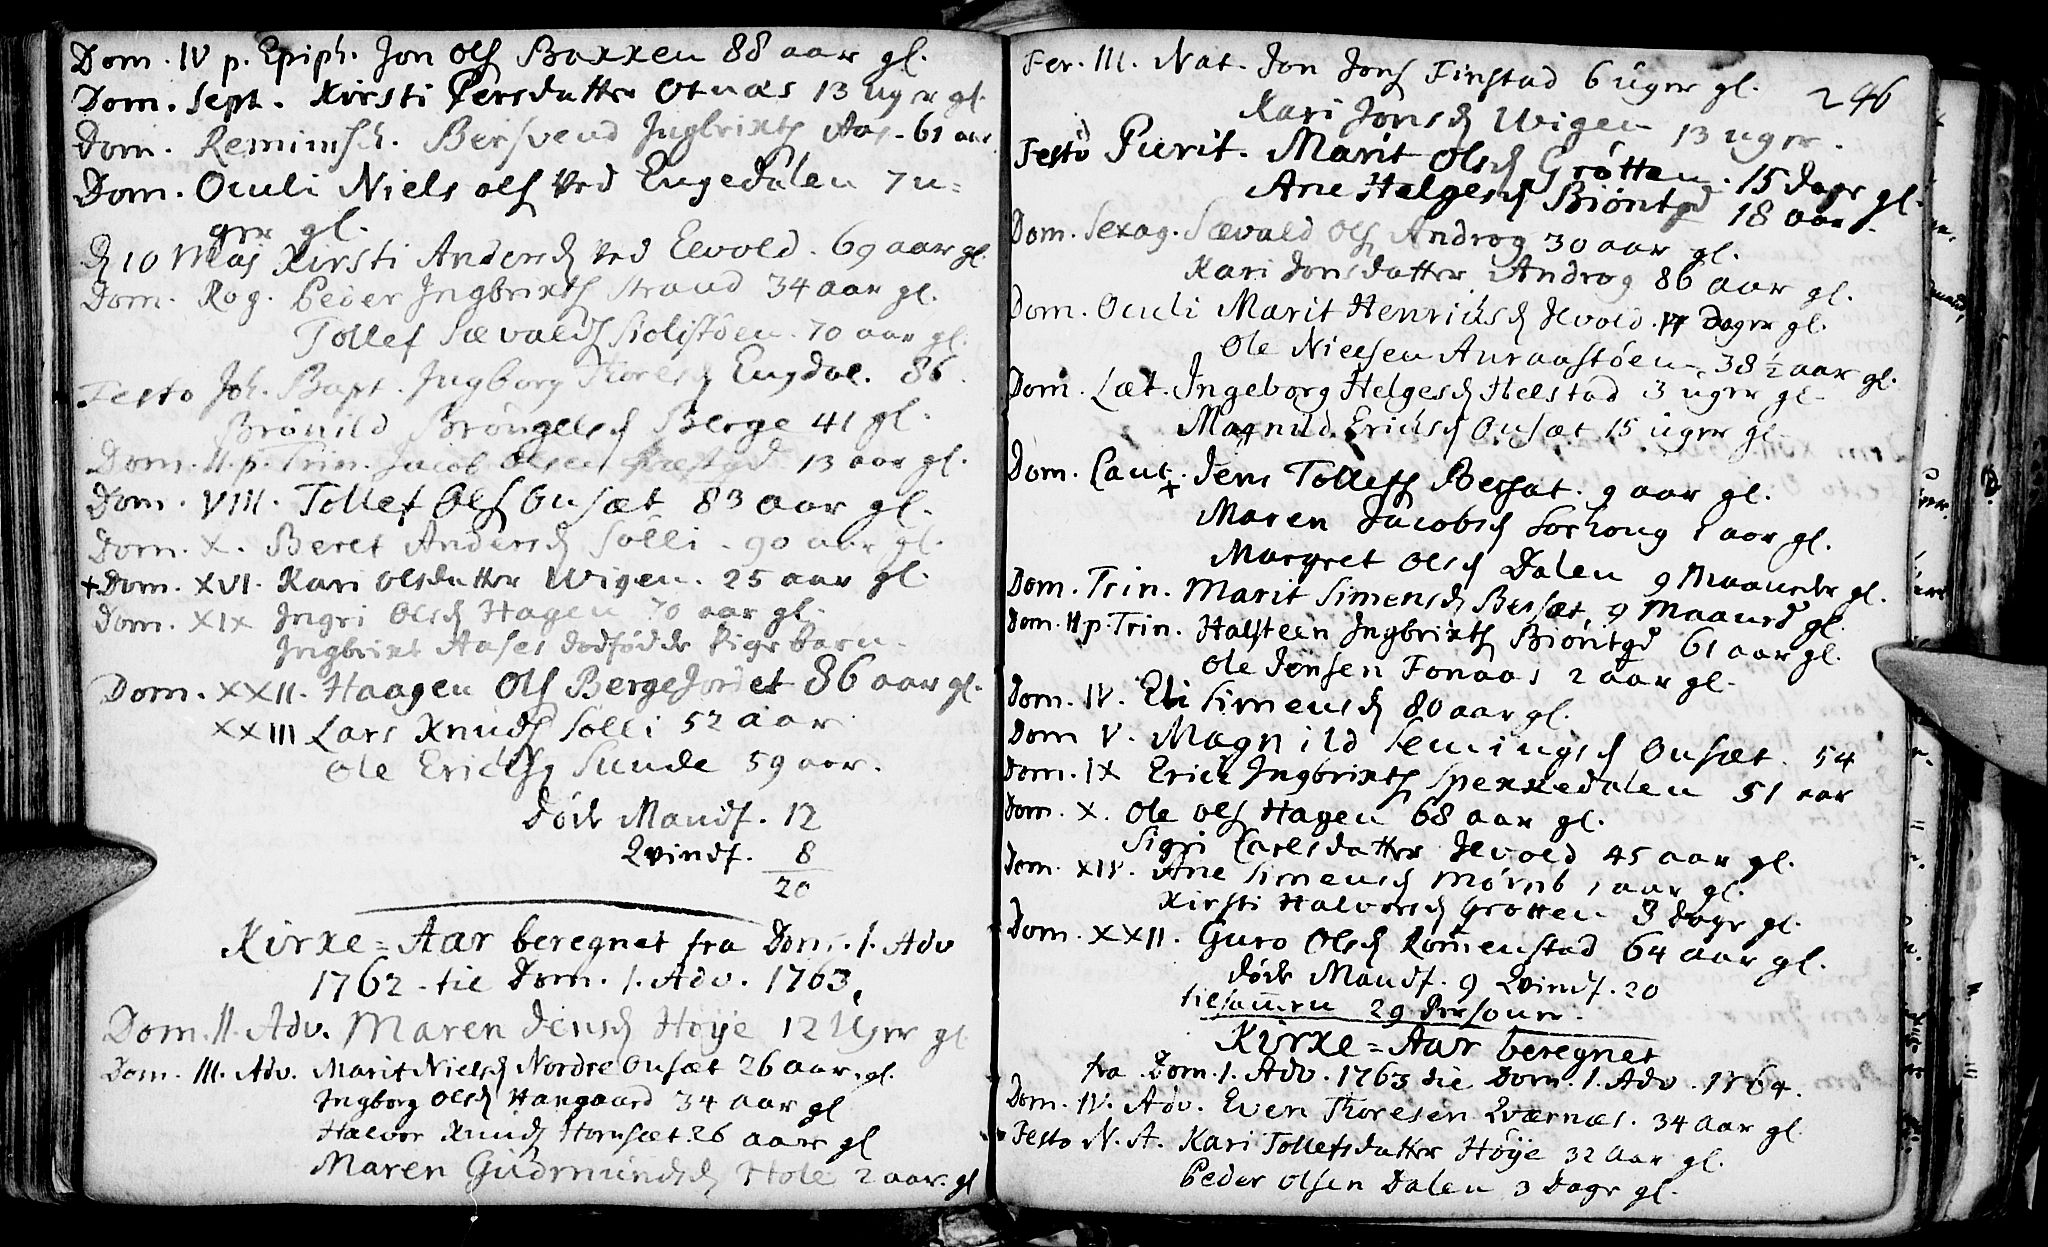 Dom. IV p. Epiph. Jon Ols Bakken 88 aar gl.
Dom. Sept. Kirsti Persdatter Otnæs 13 uger gl.
Dom. Reminisc. Bersvend Ingbrixts Aas 61 aar
Dom. Oculi Niels Ols ved Engedalen 7 u=
ger gl.
D 10 Maj Kirsti Andersd ved Elvold. 69 aar gl.
Dom. Rog. Peder Ingbrixts Strand 34 aar gl.
Tollef Sævalds 70 aar gl.
Festo Joh. Bapt. Ingborg Thoresd Engdal. 86.
Brönild Bröngelsd Berge 41 gl.
Dom. II. p. Trin. Jacob Olsen 13 aar gl.
Dom. VIII. Tollef Ols Onsæt 83 aar gl.
Dom. X. Beret Andersd Solli. 90 aar gl.
+ Dom. XVI. Kari Olsdatter Wigen. 25 aar gl.
Dom. XIX Ingri Olsd Hagen 70 aar gl.
Ingbrixt Aases dødfødde Pige barn.
Dom. XXII. Haagen Ols Bergejordet 86 aar gl.
XXIII Lars Knuds Solli 52 aar
Ole Ericks Sunde 59 aar.
Døde Mandk. 12
Qvindk. 8
20
Kirke=Aar beregnet fra Dom. 1. Adv
1762 til Dom. 1. Adv. 1763.
Dom. II. Adv. Maren Jensd Høije 12 Uger gl
Dom. III. Adv. Marit Nielsd Nordre Onsæt 26 aar gl.
Ingborg Olsd Haugaard 34 aar gl
Halvor Knuds Hornsæt 26 aar gl
Maren Gudmundsd Hole 2 aar gl
246
Fer. III. Nat. Jon Jons Finstad 6 uger gl.
Kari Jonsd Wigen 13 uger.
Festo Purif. Marit Olsd Grøtten 15 dage gl.
Ane Helgesd Biöntgd 18 aar.
Dom. Sexag. Sævald Ols Androg 30 aar gl.
Kari Jonsdatter Androg 86 aar gl.
Dom. Oculi Marit Henricksd Elvold. 17 Dager gl.
Ole Nielsen Auraastøen 38 ½ aar gl.
Dom. Læt. Ingeborg Helgesd Helstad 3 uger gl.
Magnild Ericksd Onsæt 15 uger gl.
Dom. Cant. Jens Tollefs Bersæt. 9 aar gl.
Maren Jacobsd Sorhoug 1 aar gl.
Margret Olsd Dalen 9 Maaneder gl.
Dom. Trin. Marit Simensd Bersæt, 9 Maaned gl.
Dom. II p. Trin. Halsteen Ingbrixts Biöntgd 61 aar gl.
Ole Jensen Fonaas 2 aar gl.
Dom. IV. Eli Simensd 80 aar gl.
Dom V. Magnild Semingsd Onsæt. 54
Dom. IX Erick Ingbrixts Spekkedalen 51 aar
Dom. X. Ole Ols Hagen 68 aar gl.
Sigri Carlsdatter Elvold 45 aar gl.
Dom. XIV. Ane Simensd 1 aar gl.
Kirsti Halvorsd Grøtten 3 dage gl.
Dom. XXII. Guro Olsd Romenstad 64 aar gl.
døde Mandk. 9 Qvindk. 20
tilsammen 29 Personer.
Kirke=Aar beregnet
fra Dom. 1. Adv. 1763 til Dom. 1. Adv. 1764.
Dom. IV. Adv. Even Thoresen Qværnæs. 34 Aar gl.
Festo N. A. Kari Tollefsdatter Høije 32 Aar gl.
Peder Olsen Dalen 3 Dage gl.